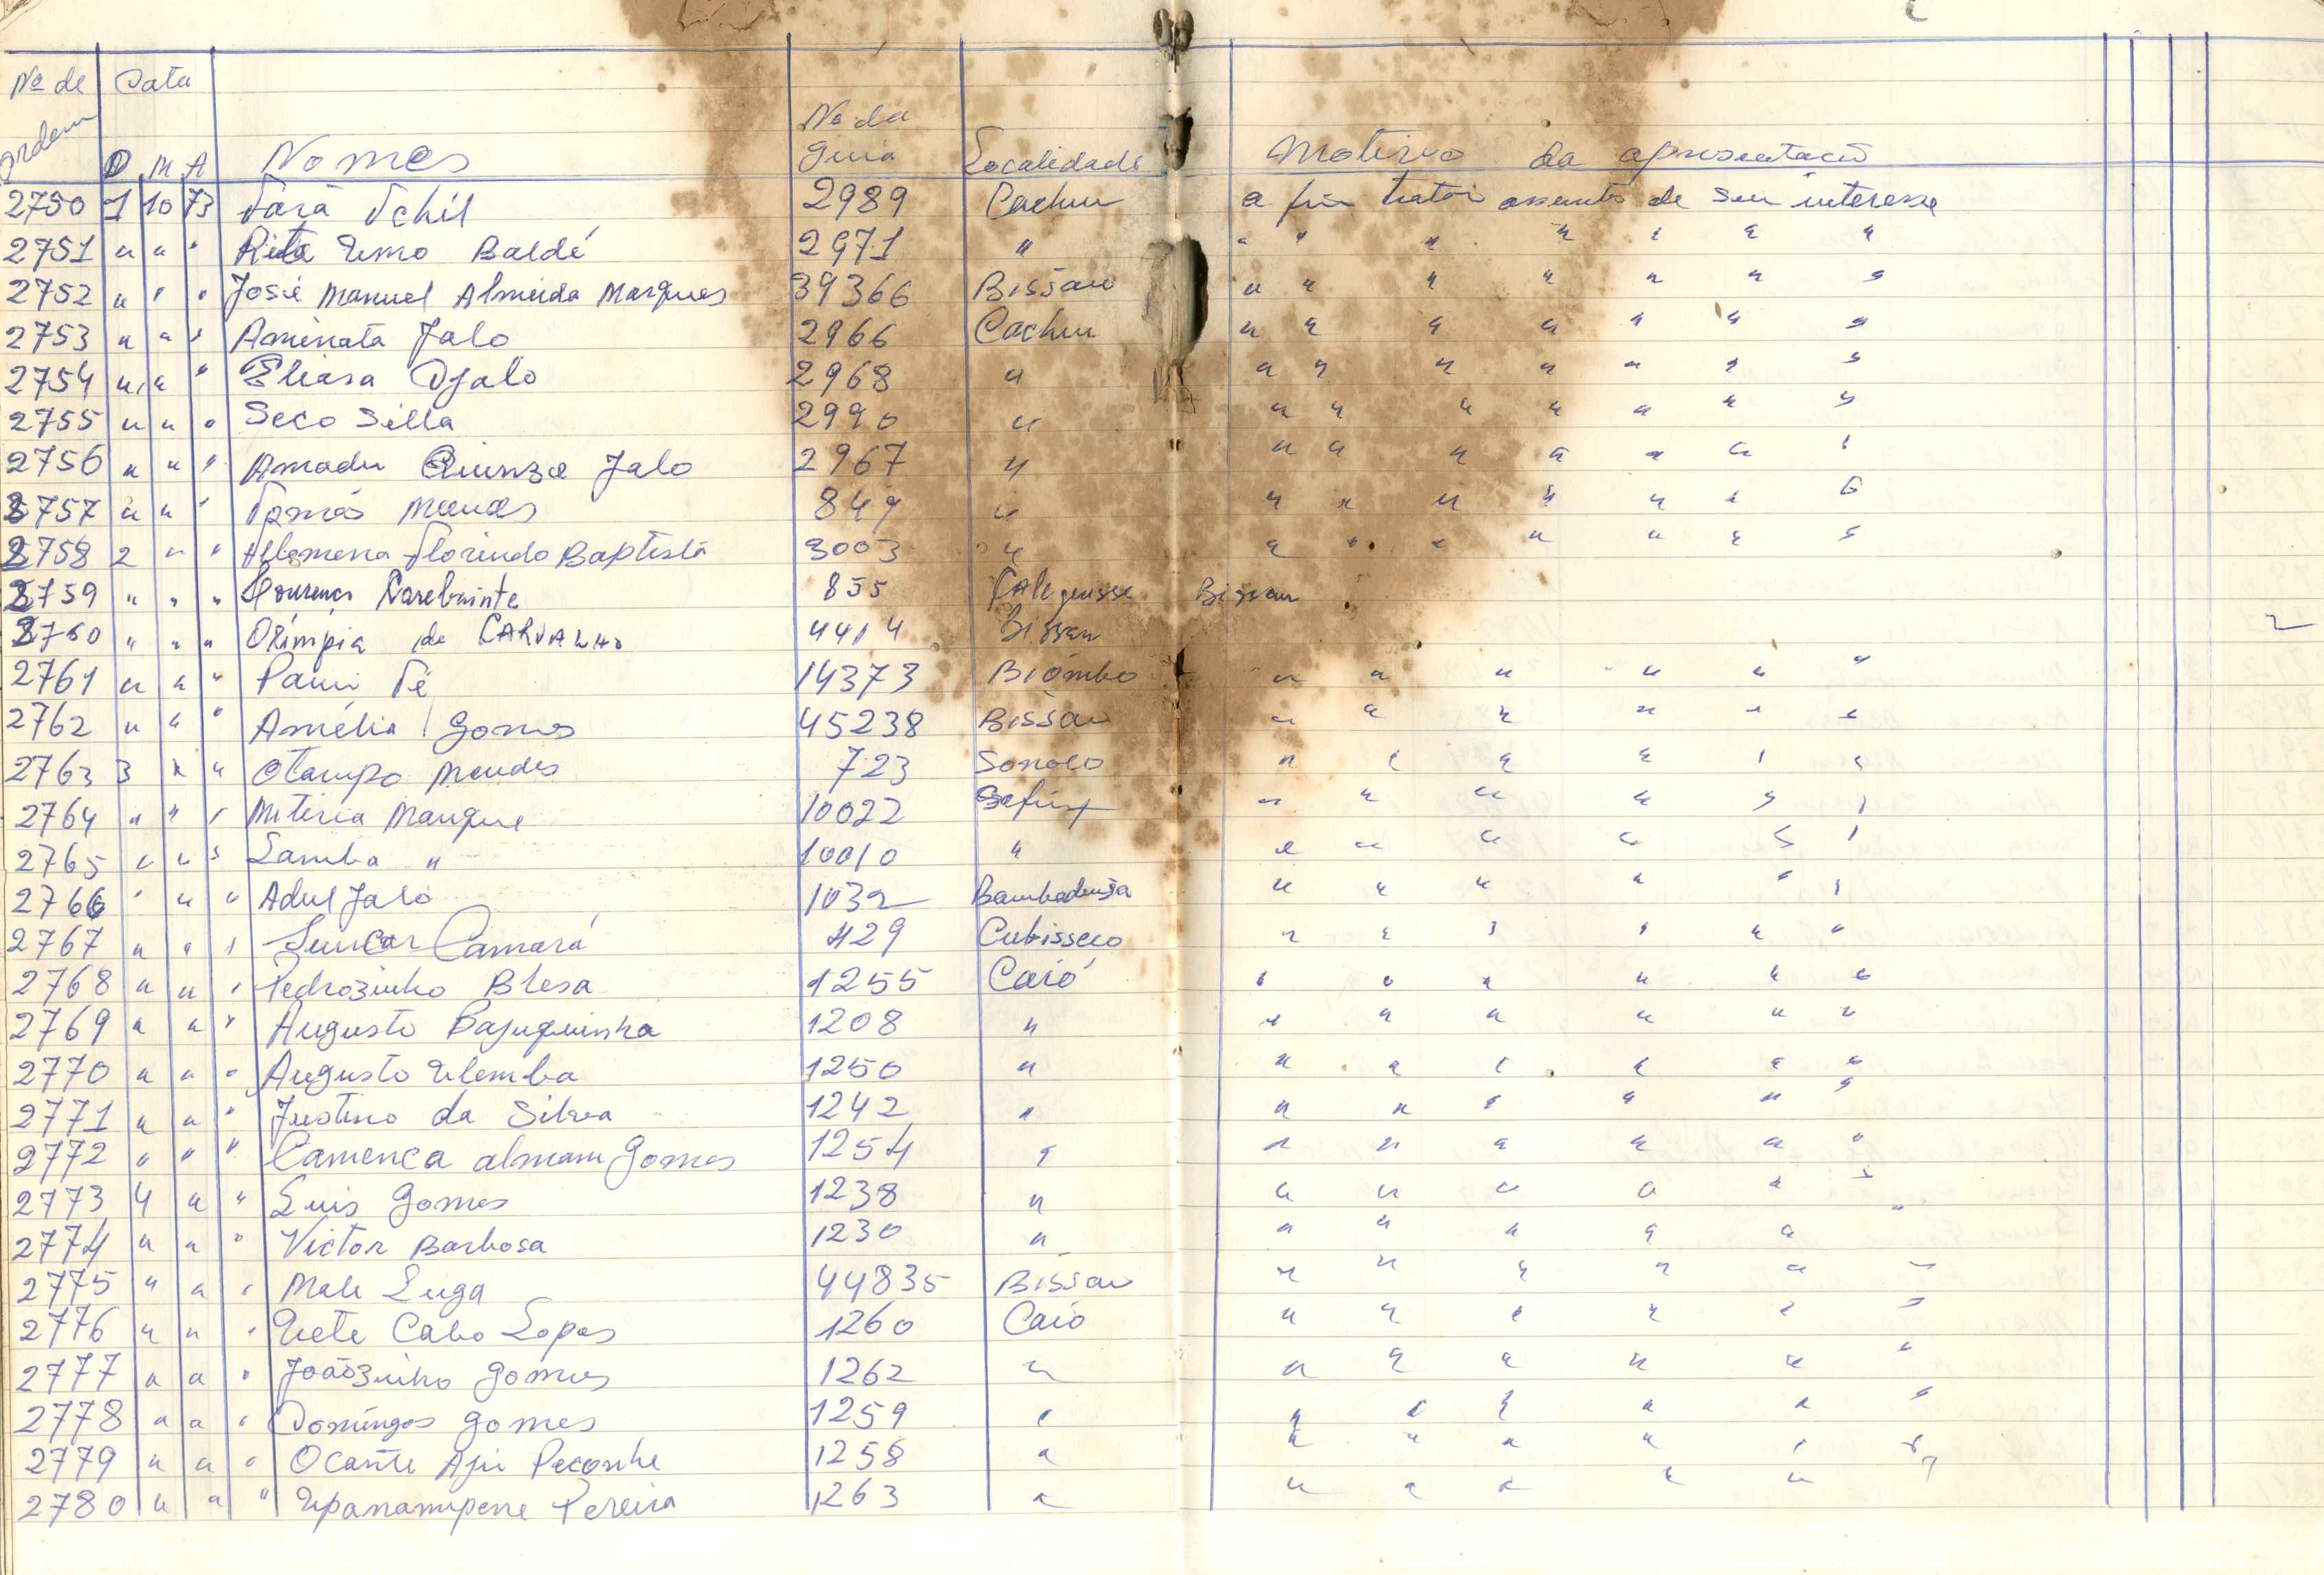 Nº de Data
Nº da
ordem D M A Nomes guia Localidade Motivo da apresentação
2750 1 10 73 Tará Tchil 2989 Cacheu a fim tratar assunto de seu interesse
2751 " " " Rita Umo Baldé 2971 " " " " " " " "
2752 " " " José Manuel Almeida Marques 39366 Bissau " " " " " " "
2753 " " " Aminata Jaló 2966 Cacheu " " " " " " "
2754 " " " Eliasa Djaló 2968 " " " " " " " "
2755 " " " Seco Silla 2990 " " " " " " " "
2756 " " " Amadu Jalo 2967 " " " " " " " "
2757 " " " Tomás Mendes 849 " " " " " " " "
2758 2 " " Florindo Baptista 3003 " " " " " " " "
2759 " " " Lourenço 855 Bissau
2760 " " " Olímpia de CARVALHO 4414 Bissau
2761 " " " Té 14373 Biombo " " " " " "
2762 " " " Amélia Gomes 45238 Bissau " " " " " "
2763 3 " " Otampo Mendes 723 Sonaco " " " " " "
2764 " " " Miteria Mangue 10022 " " " " " "
2765 " " " Lamba " 10010 " " " " " " "
2766 " " " Adul Jaló 1032 Bambadinca " " " " " "
2767 " " " Camará 429 Cubisseco " " " " " "
2768 " " " Pedrozinho Blesa 1255 Caió " " " " " "
2769 " " " Augusto 1208 " " " " " " "
2770 " " " Augusto Ulemba 1250 " " " " " " "
2771 " " " Justino da Silva 1242 " " " " " " "
2772 " " " Gomes 1254 " " " " " " "
2773 4 " " Luis Gomes 1238 " " " " " " "
2774 " " " Victor Barbosa 1230 " " " " " " "
2775 " " " Luga 44835 Bissau " " " " " "
2776 " " " Cabo Lopes 1260 Caió " " " " " "
2777 " " " Joãozinho Gomes 1262 " " " " " " "
2778 " " " Domingos Gomes 1259 " " " " " " "
2779 " " " Ocante 1258 " " " " " " "
2780 " " " Pereira 1263 " " " " " " "